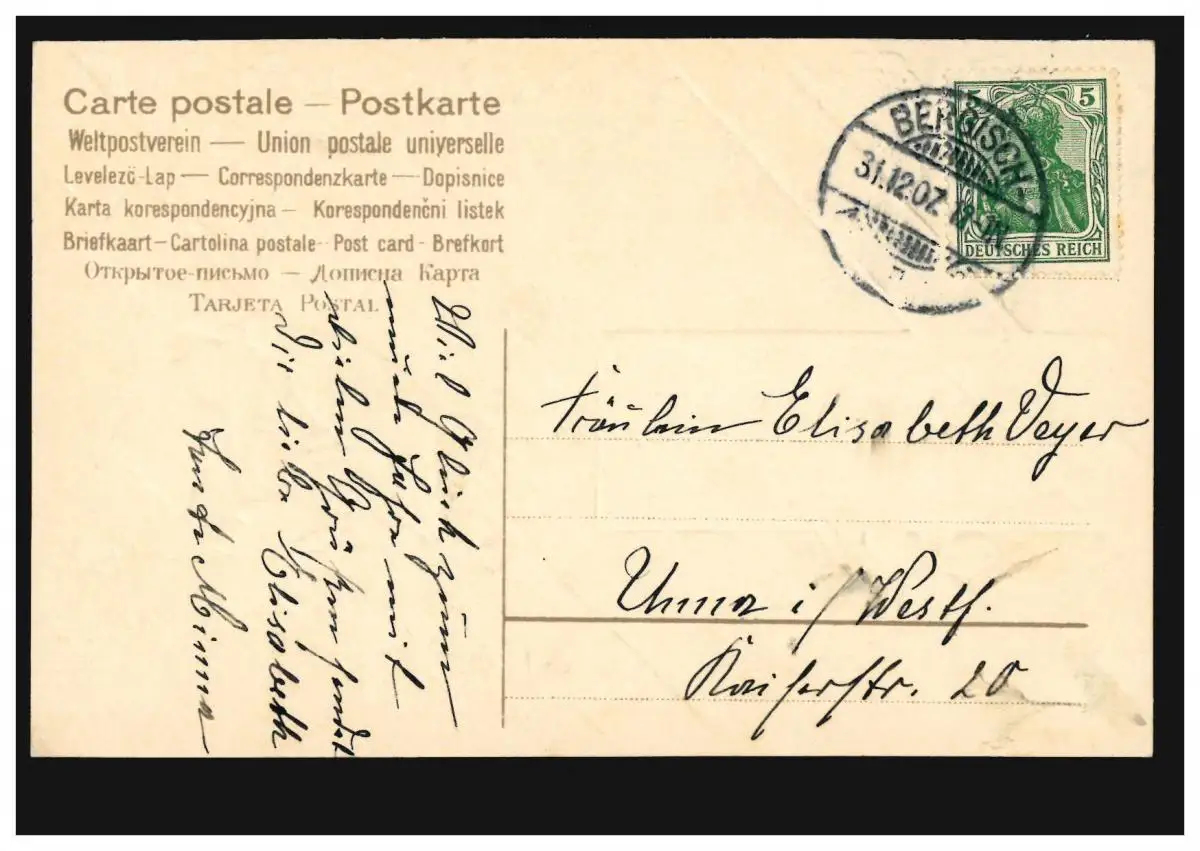 Carte postale — Postkarte
Weltpostverein — Union postale universelle
Levelező-Lap — Correspondenzkarte — Dopisnice
Karta korespondencyjna — Korespondenční listek
Briefkaart — Cartolina postale - Post card - Brefkort
Открытое-письмо — Дописна Карта
TARJETA POSTAL
BERGISCH-
31.12.07
5 5
DEUTSCHES REICH
Viel Glück zum
neuen Jahre mit
vielen Grüßen sendet
Dir liebe Elisabeth
Tante Minna
Fräulein Elisabeth Veyer
Unna i/Westf.
Kaiserstr. 20